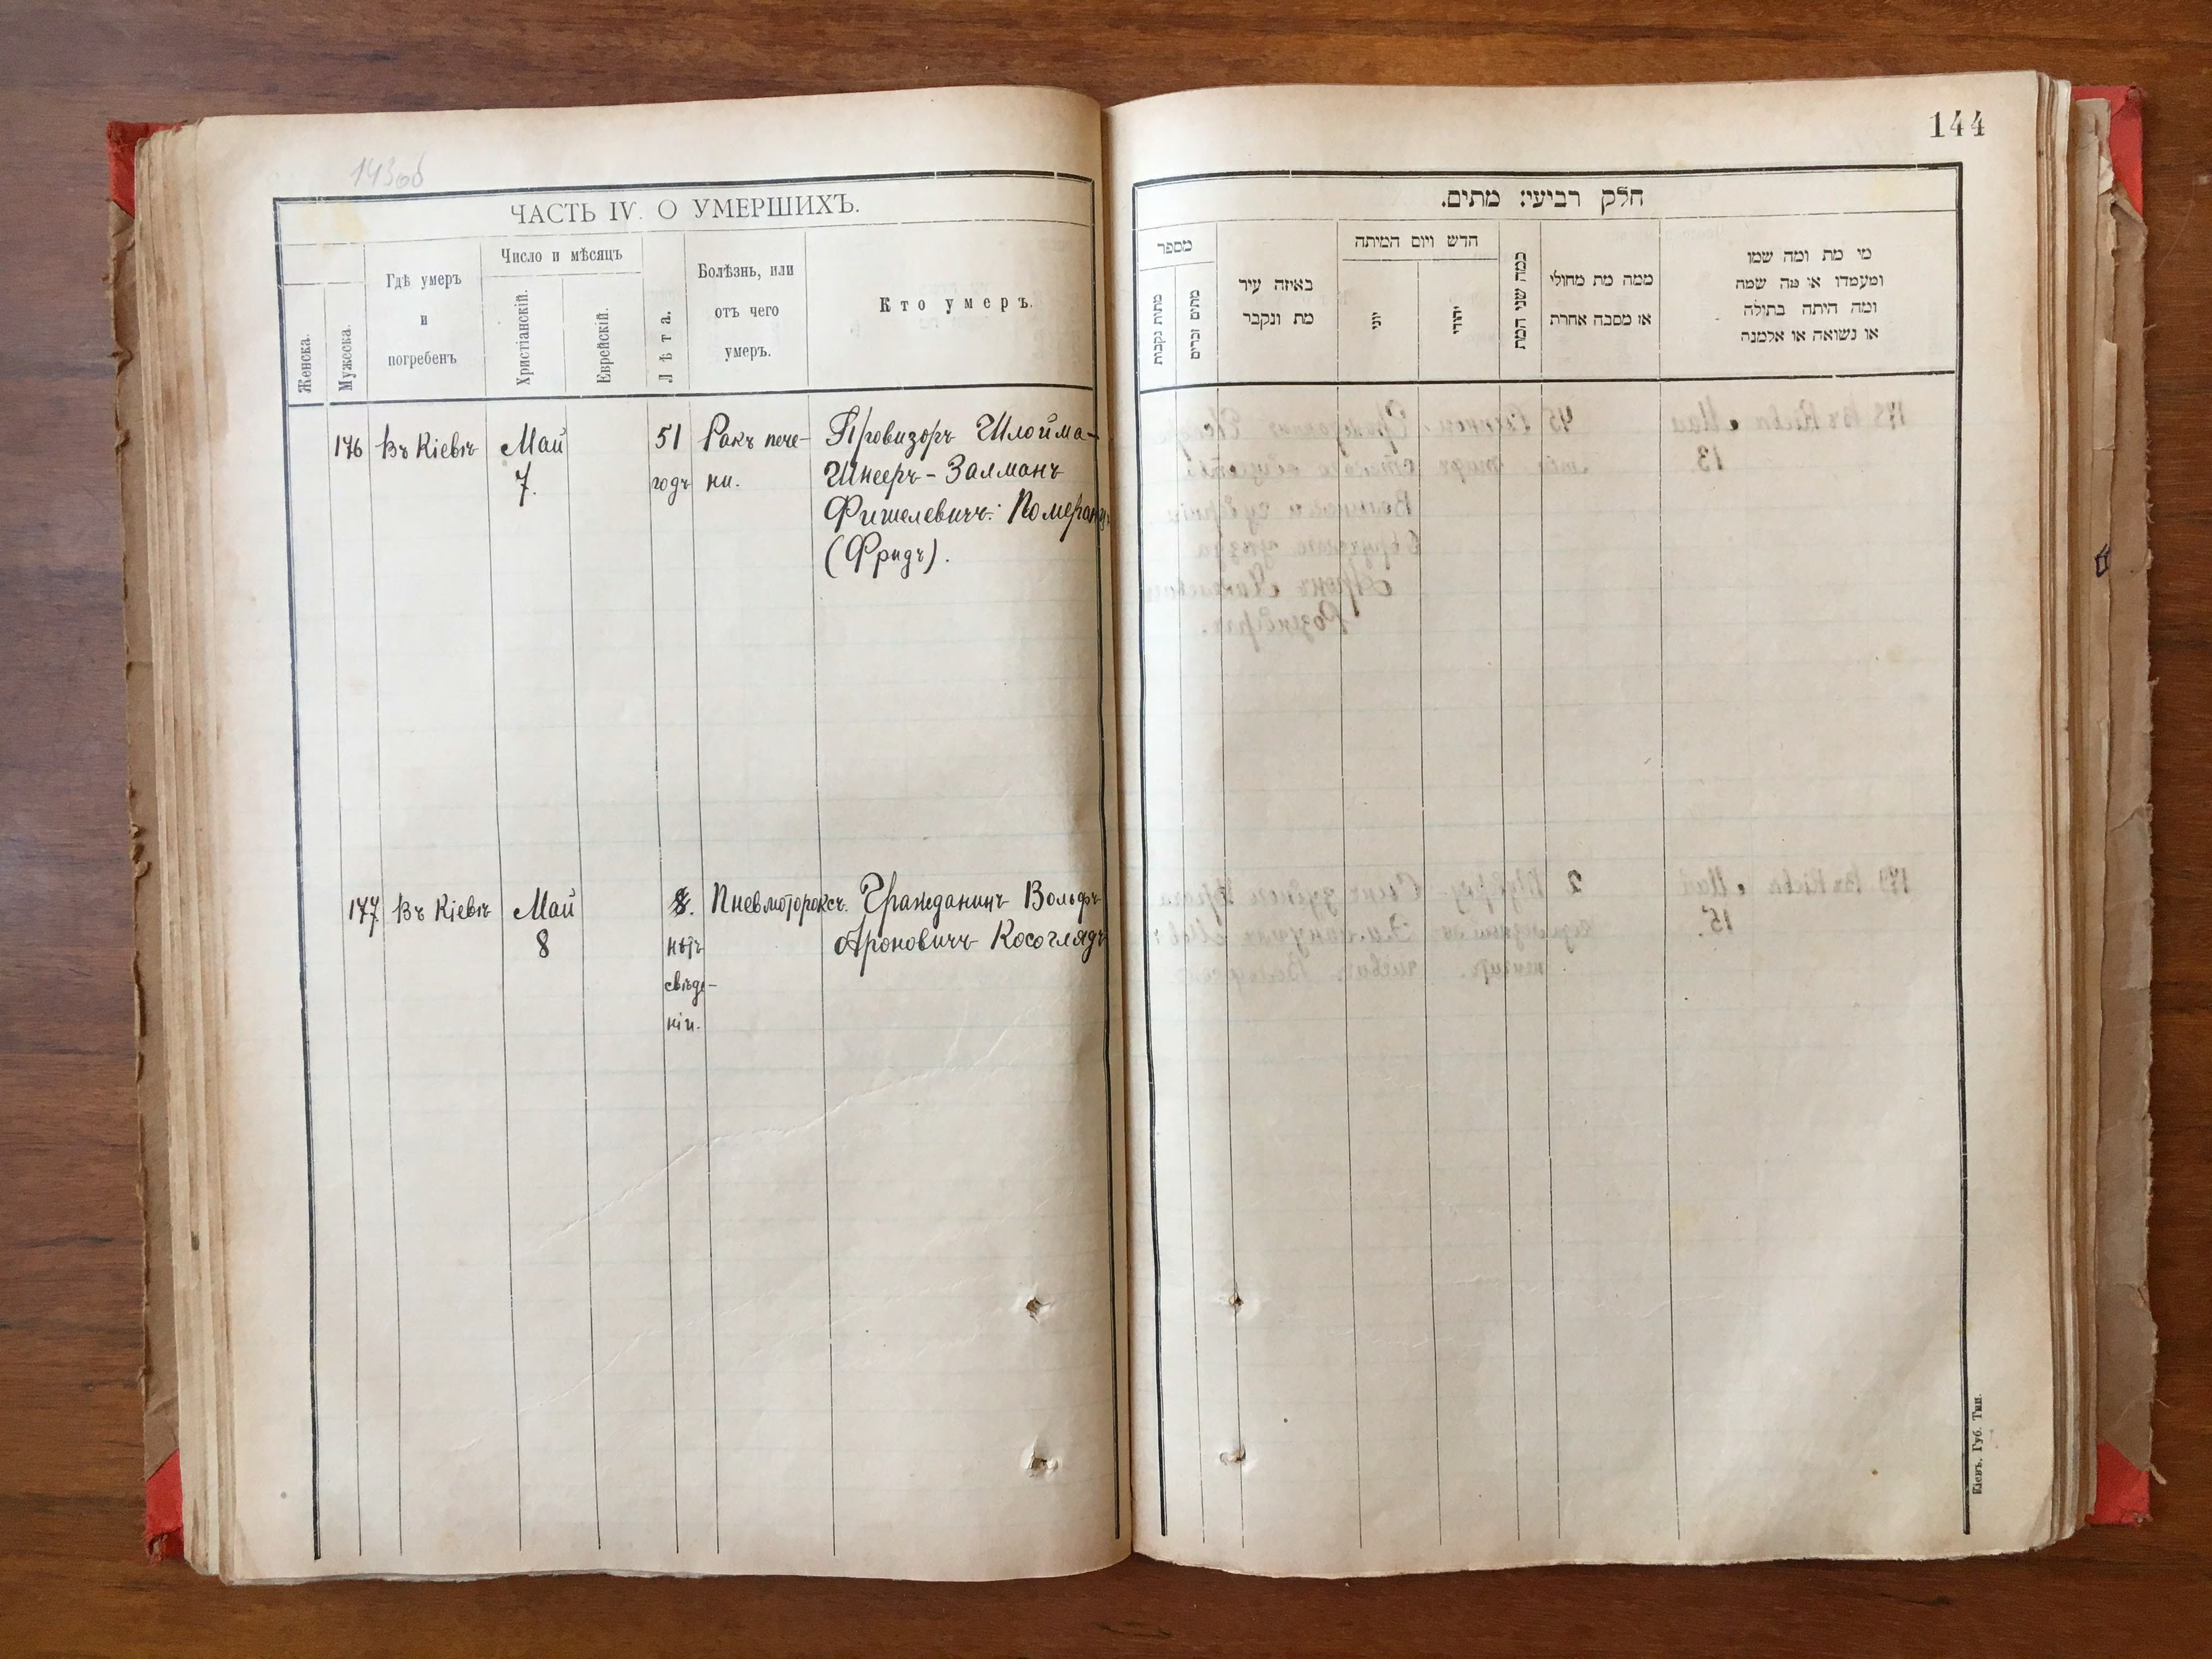 143об
ЧАСТЬ IV. О УМЕРШИХЪ.
Женска.
Мужеска.
Гдѣ умеръ
и
погребенъ
Число и мѣсяцъ
Христіанскій.
Еврейскій.
Лѣта.
Болѣзнь, или
отъ чего
умеръ.
Кто умеръ.
176 Въ Кіевѣ Май 51 Ракъ пече- Провизоръ Шлойма-
7. годъ ни. Шнееръ-Залманъ
Фишелевичъ Померанцъ
(Фридъ).
177 Въ Кіевѣ Май 8. Пневмотораксъ. Гражданинъ Вольфъ
8 нѣтъ Ароновичъ Косоглядъ
свѣде-
ніи.
144
חלק רביעי: מתים.
מספר
מתות נקבות
מתים זכרים
באיזה עיר
מת ונקבר
חדש ויום המיתה
יוני
יהודי
כמה שני המת
ממה מת מחולי
או מסבה אחרת
מי מת ומה שמו
ומעמדו או מה שמה
ומה היתה בתולה
או נשואה או אלמנה
Кіевъ, Губ. Тип.